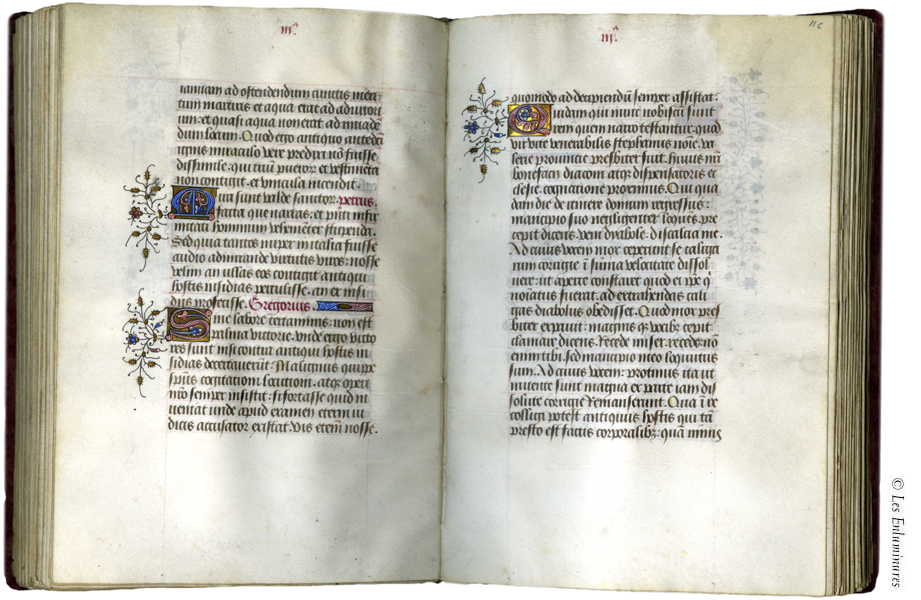 iiiꝰ
ianuam ad ostendendum cunctis meri
tum martiris et aqua erat ad adiutori
um: et quasi aqua non erat ad inuadē
dum locum. Quod ergo antiquo antedicti
ignis miraculo vere predixi nō fuisse
dissimile. qui trium pueror et vestimēta
non contigit, et vincula incendit.
Mira sunt valde sanctor. Petrus.
facta que narras: et pn̄ti infir
mitati hominum vehemēter stupenda.
Sed quia tantos nuper in italia fuisse
audio admirande virtutis viros: nosse
velim an ullas eos contigit antiqui
hostis insidias pertulisse. an ex insi
diis profecisse. Gregorius.
Sine labore certaminis: non est
palma victorie. Unde ergo victo
res sunt nisi contra antiqui hostis in
sidias decertauerunt: Malignus quippe
sp̄us cogitationi. locutioni. atq operi
nr̄o semper insistit: si fortasse quid in
ueniat unde apud examen eterni iu
dicis accusator existat. Vis etem̄ nosse.
iiiꝰ
quomodo ad decipiendū semper assistat.
Quidam qui nunc nobiscū sunt
rem quem narro testantur: quod
vir vite venerabilis stephanus nōie. va
lerie prouincie presbiter fuit. huius nr̄i
bonefacii diaconi atqz dispensatoris ec
clesie. cognatione proximus. Qui qua
dam die de itinere domum regressus:
mancipio suo negligenter loquēs. pre
cepit dicens. veni dyabole. discalcia me.
Ad cuius vocem mox ceperunt se caliga
rum corrigie ī sūma velocitate dissol
uere: ut aperte constaret quod et ip̄e q
noīatus fuerat. ad extrahendas cali
gas diabolus obedisset. Quod mox pres
biter expauit: magnis qz vocibz cepit
clamare dicens. Recede miser. recede: nō
enim tibi. sed mancipio meo loquutus
sum. Ad cuius vocem: protinus ita ut
inuente sunt magna ex parte iam dis
solute corrigie remanserunt. Qua ī re
colligi potest antiquus hostis qui tā
presto est factis corporalibz: quā nimis
© Les Enluminures